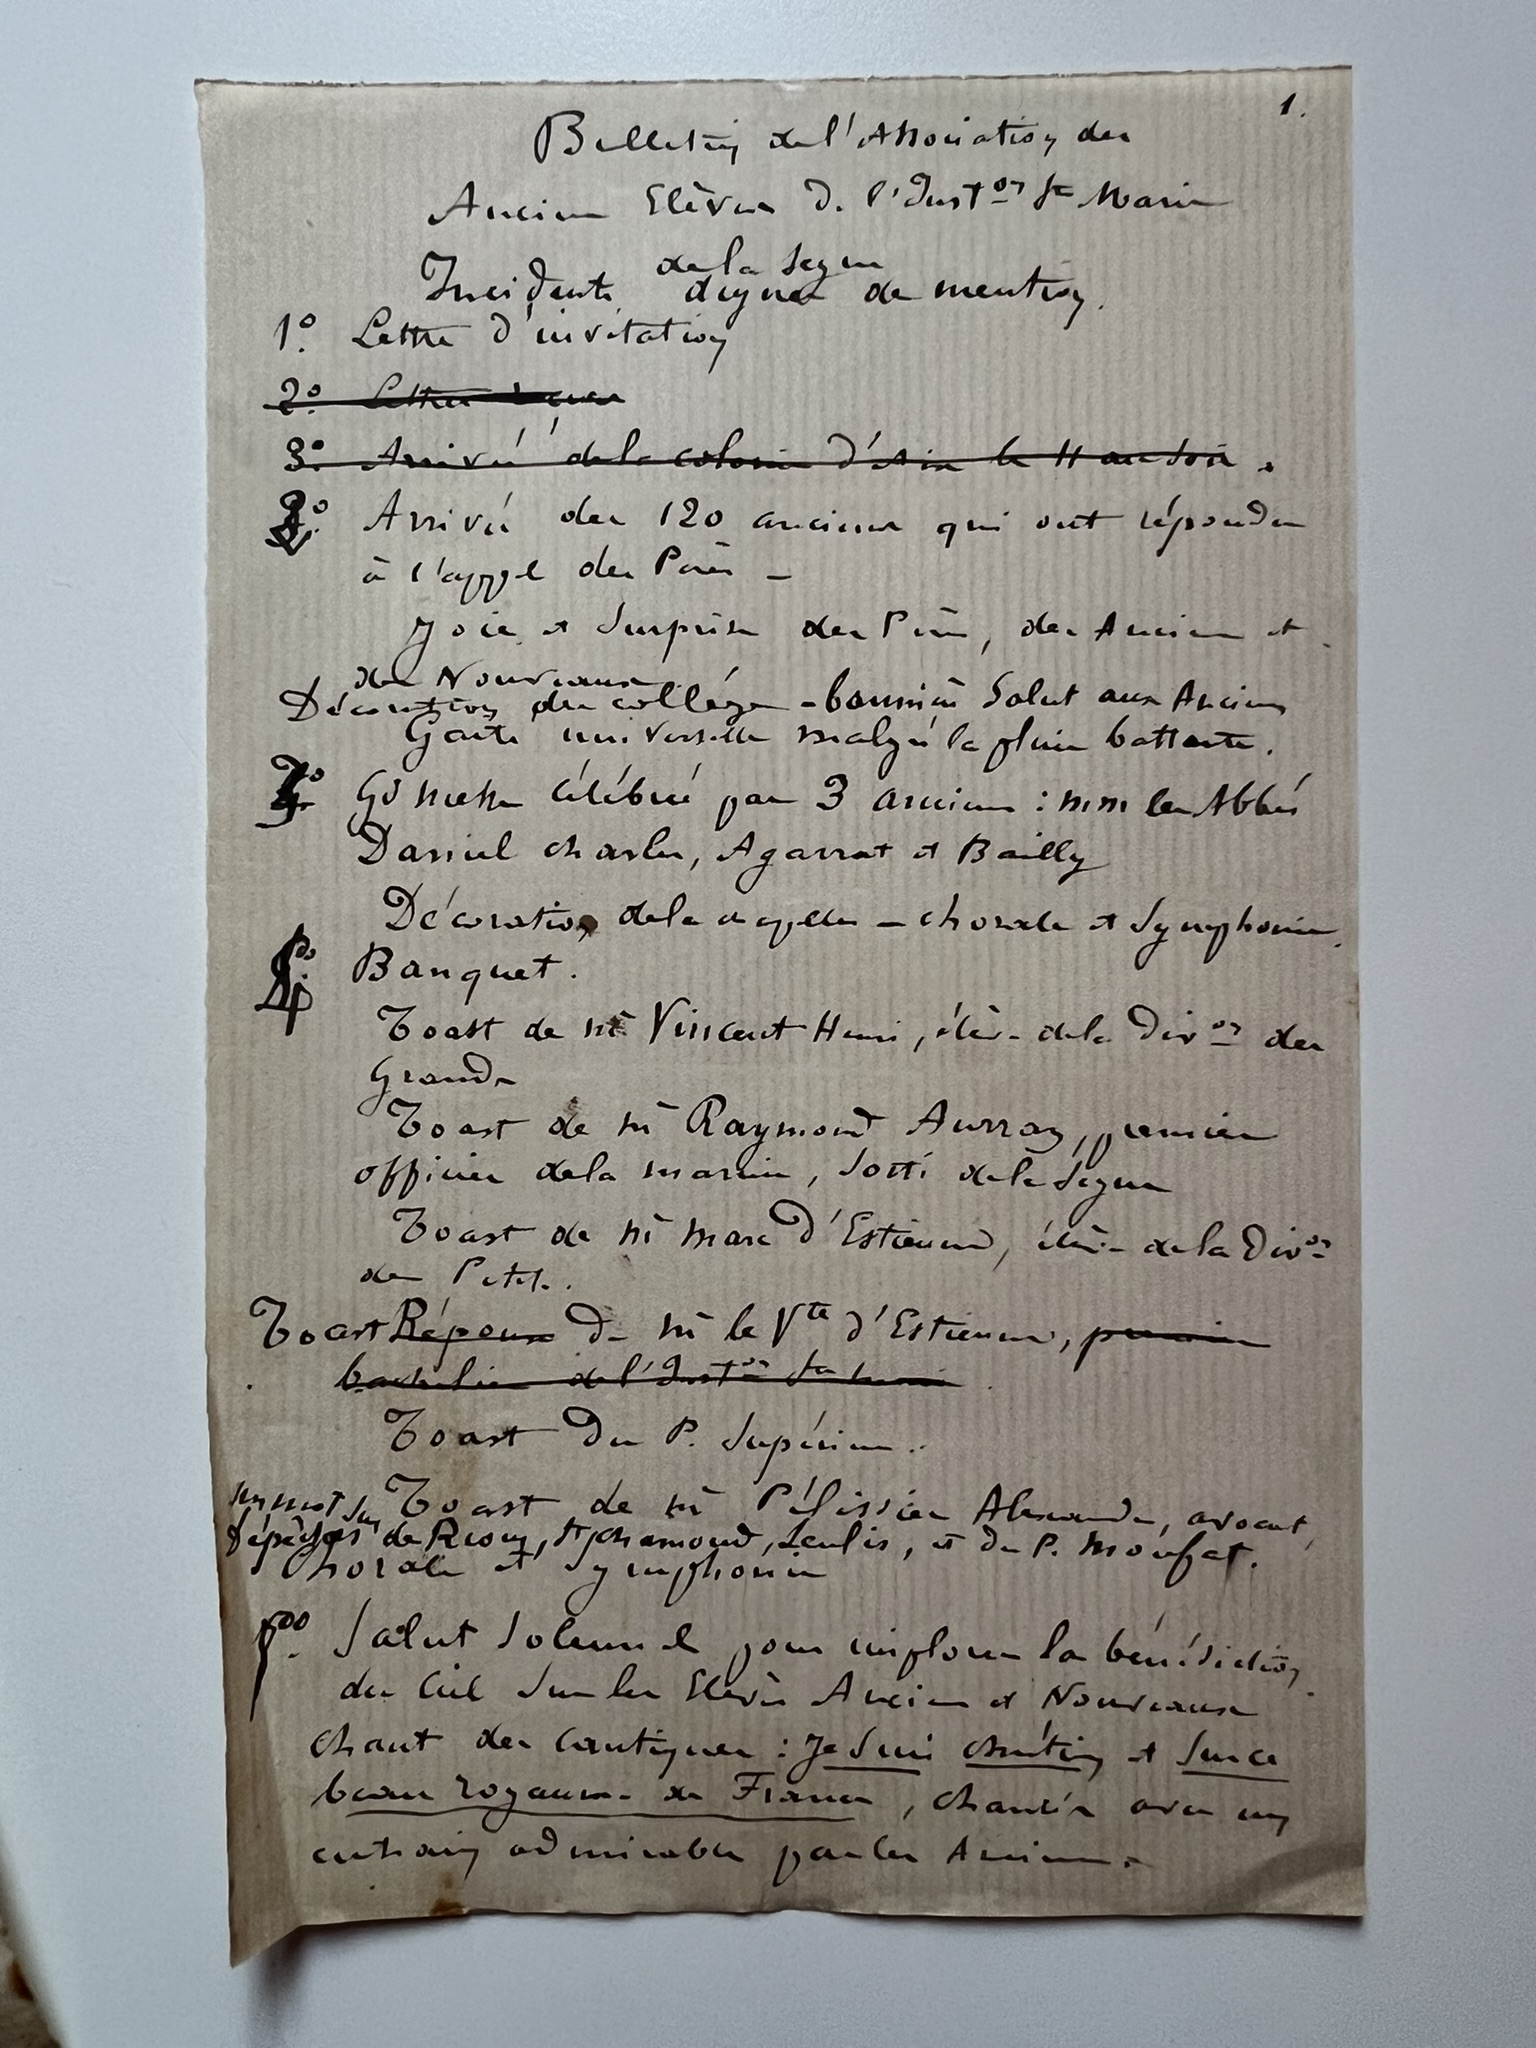 1.
Bulletin de l'Association des
Anciens Elèves de l'Inst.on Ste Marie
de la Seyne
Incidents dignes de mention.
1º Lettre d'invitation
2º Lettres reçues
3º Arrivée de la colonie d'Aix le
2º Arrivée des 120 anciens qui ont répondu
à l'appel des Pères –
Joie et surprise des Pères, des Anciens et
des Nouveaux
Décoration du collège – bannière Salut aux Anciens
Gaité universelle malgré la pluie battante.
3º Gd Messe célébrée par 3 anciens : MM les Abbés
Daniel Charles, Agarrat et Bailly
Décoration de la chapelle – chorale et symphonie.
4º Banquet.
Toast de Mr Vincent Henri, élève de la Div.on des
Grands
Toast de Mr Raymond Auzran, premier
officier de la marine, sorti de la Seyne
Toast de Mr Marc d'Estienne, élève de la Div.on
des Petits.
Toast Réponse de Mr le Vte d'Estienne, premier
bachelier de l'Inst.on Ste Marie
Toast du P. Supérieur.
un mot sur Toast de Mr Pélissier Alexandre, avocat,
dépêches de Riom, St Chamond, Senlis, et du P. Moufat.
Chorale et Symphonie
5º Salut solennel pour implorer la bénédiction
du Ciel sur les Elèves Anciens et Nouveaux
chant des cantiques : Je suis chrétien et Sur ce
beau royaume de France, chantés avec un
entrain admirable par les Anciens.